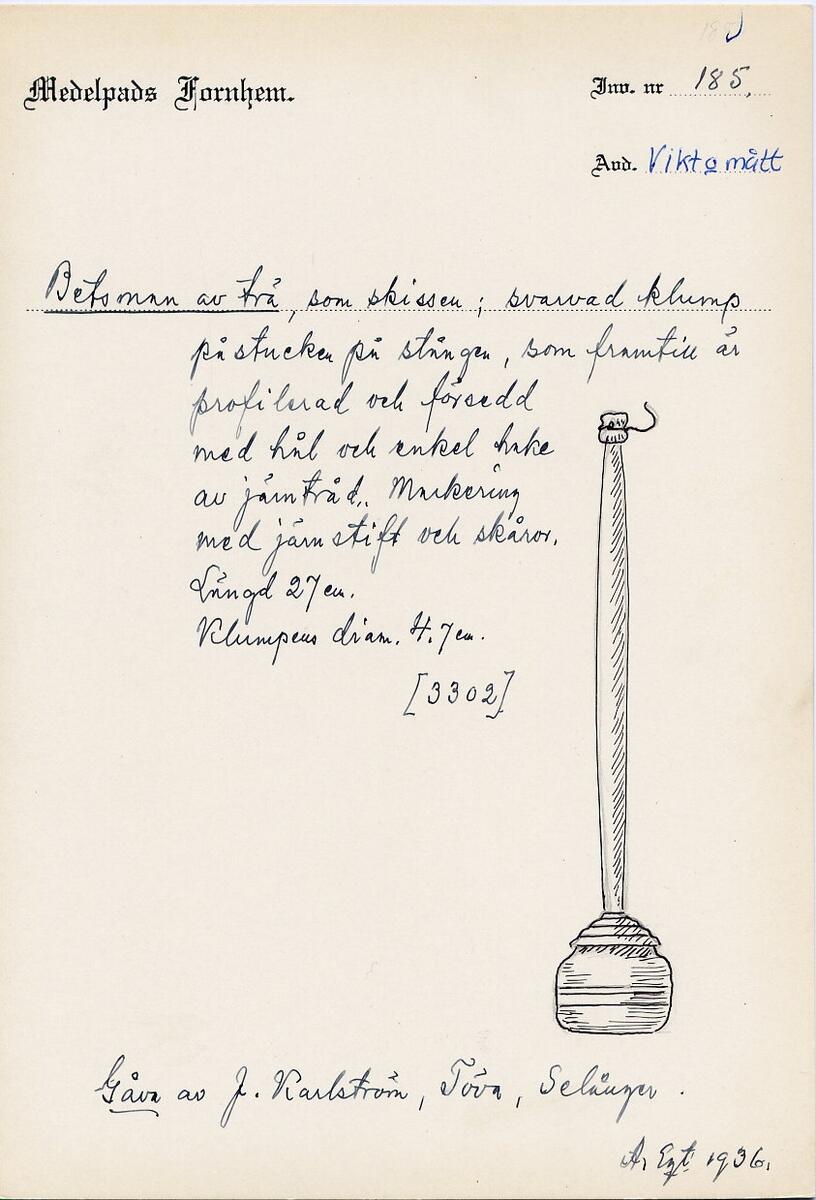 Medelpads Fornhem.
Inv. nr 185.
Avd. Vikt o mått
Betsman av trä, som skissen; svarvad klump
påstucken på stången, som framtill är
profilerad och försedd
med hål och enkel hake
av järntråd. Markering
med järnstift och skåror.
Längd 27 cm.
Klumpens diam. 4.7 cm.
[3302]
Gåva av J. Karlström, Töva, Selånger.
A. Egt. 1936.